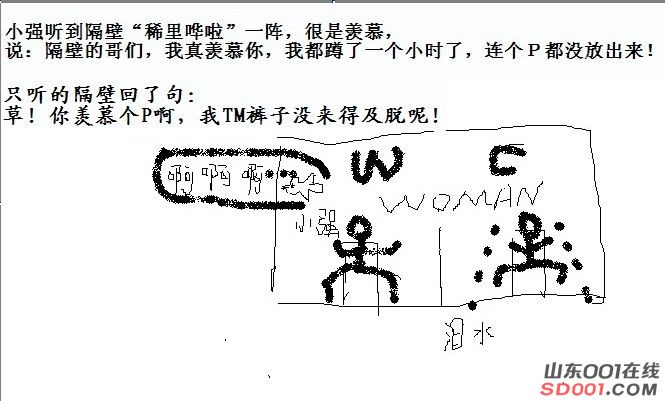 小强听到隔壁“稀里哗啦”一阵，很是羡慕，
说：隔壁的哥们，我真羡慕你，我都蹲了一个小时了，连个P都没放出来！
只听的隔壁回了句：
草！你羡慕个P啊，我TM裤子没来得及脱呢！
W C
啊啊啊
WOMAN
小强
泪水
山东001在线
SD001.COM